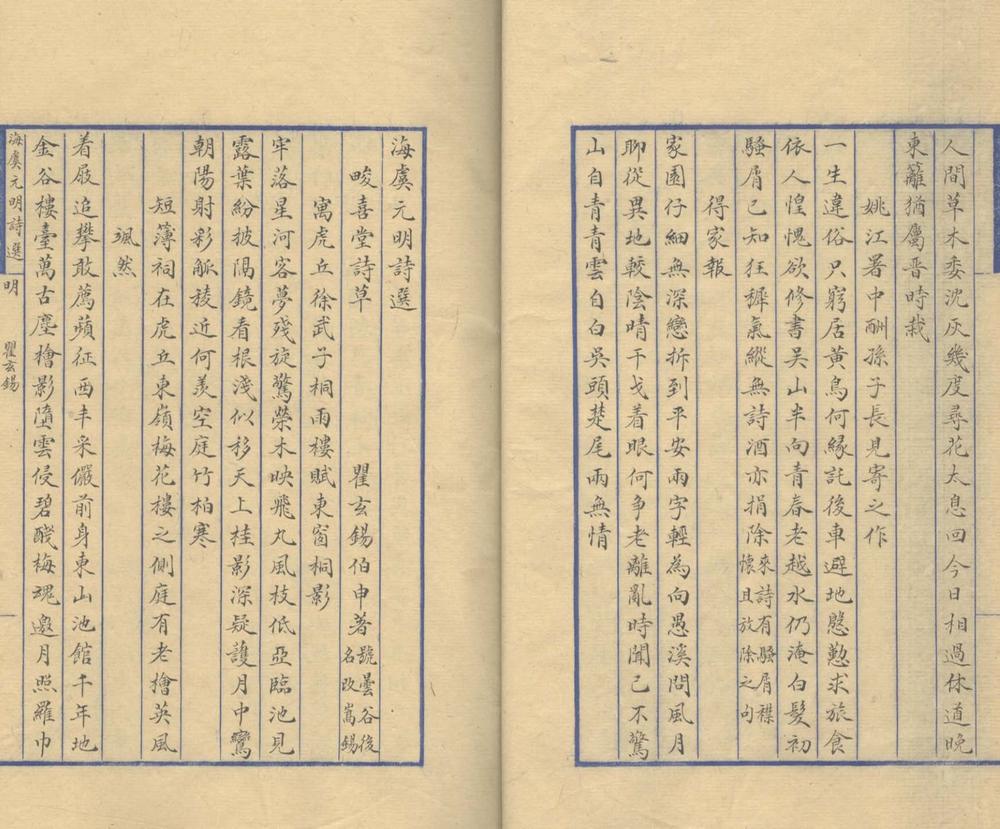 人間草木委沈灰幾度尋花太息回今日相過休道晚
東籬猶屬晉時栽
姚江署中酬孫子長見寄之作
一生違俗只窮居黃鳥何緣託後車避地慇懃求旅食
依人惶愧欲修書吳山半向青春老越水仍淹白髮初
騷屑已知狂穉氣縱無詩酒亦捐除來詩有騷屑襟
懷且放除之句
得家報
家園仔細無深戀拆到平安兩字輕為向愚溪問風月
聊從異地較陰晴干戈着眼何爭老離亂時聞已不驚
山自青青雲自白吳頭楚尾兩無情
海虞元明詩選
畯喜堂詩草 瞿玄錫伯申著號曇谷後
名改嵩錫
寓虎丘徐武子桐雨樓賦東窗桐影
牢落星河客夢殘旋驚榮木映飛丸風枝低亞臨池見
露葉紛披隔鏡看根淺似移天上桂影深疑護月中鸞
朝陽射彩觚稜近何羨空庭竹柏寒
短簿祠在虎丘東嶺梅花樓之側庭有老檜英風
颯然
着屐追攀敢薦蘋征西丰采儼前身東山池館千年地
金谷樓臺萬古塵檜影墮雲侵碧醆梅魂邀月照羅巾
海虞元明詩選 明 瞿玄錫